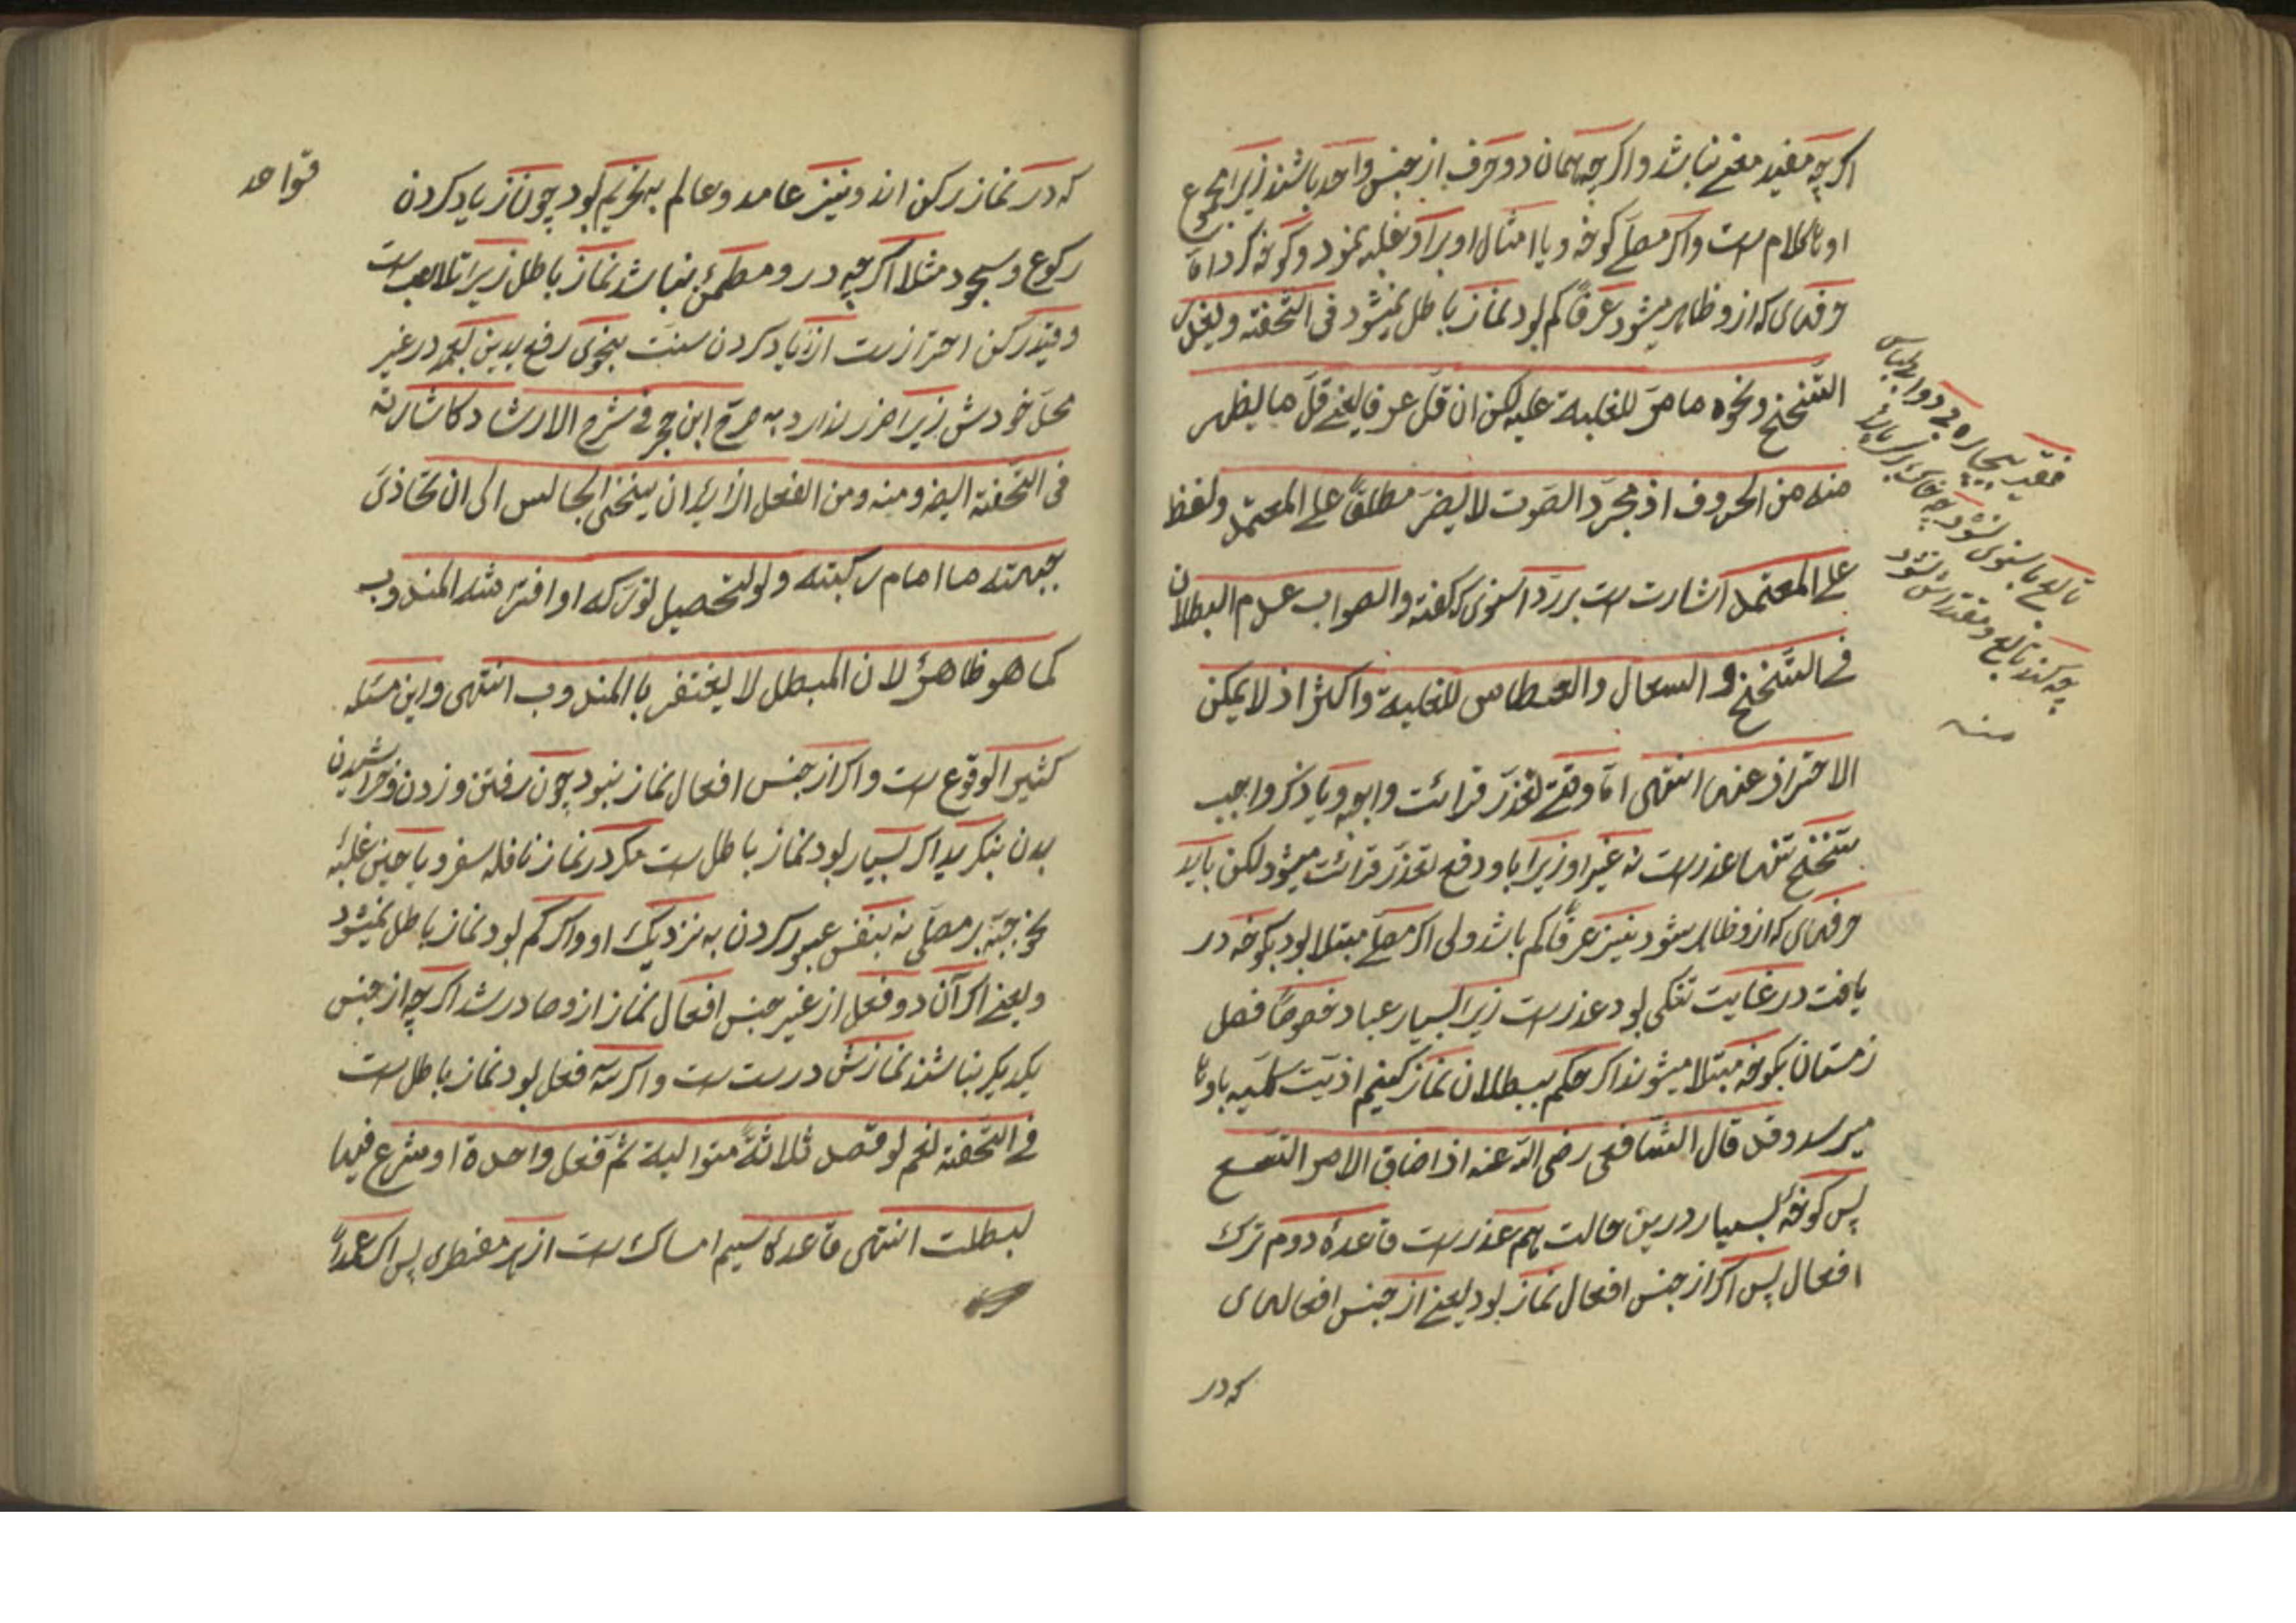 اکرچه مفید معنی نباشد و اکرچه همان دو حرف از جنس واحد باشند زیرا مجموع
او تا کلام است و اکر مصلی کوخه و یا امثال او بر او غلبه نمود و کوخه کرد اما
حرفهای که ازو ظاهر میشود عرفاً کم بود نماز باطل نمیشود فی التحفة ویعذر
التنحنح ونحوه مما مر للغلبة علیه لکن ان قل عرفا یعنی قل ما یظهر
منه من الحروف اذ مجرد الصوت لا یضر مطلقاً علی المعتمد ولفظ
علی المعتمد اشارت است بر رد اسنوی که کفته والصواب عدم البطلان
فی التنحنح والسعال والعطاس للغلبة واکثر اذ لا یمکن
الاحتراز عنها انتهی اما وقتی تعذر قرائت واجبه و یا ذکر واجب
تنحنح تنها عذر است نه غیر او زیرا باو دفع تعذر قرائت میشود لکن باید
حرفهای که ازو ظاهر شود نیز عرفاً کم باشد ولی اکر مصلی مبتلا بود بکوخه در
یافت در غایت تنکی بود عذر است زیرا بسیار عباد خصوصاً فصل
زمستان بکوخه مبتلا میشوند اکر حکم ببطلان نماز کنیم اذیت کلیه باوها
میرسد وقد قال الشافعی رضی الله عنه اذا ضاق الامر اتسع
پس کوخهٔ بسیار درین حالت هم عذر است قاعدهٔ دوم ترک
افعال پس اکر از جنس افعال نماز بود یعنی از جنس افعالهای
که در
فقیر بیچاره
منه
که در نماز رکن اند و نیز عامد و عالم به تحریم بود چون زیاد کردن
رکوع و سجود مثلا اکرچه درو مطمئن نباشد نماز باطل زیرا تلاعب است
وقید رکن احتراز است از زیاد کردن سنت بنحوی رفع یدین در غیر
محل خودش زیرا ضرر ندارد به صرح ابن حجر فی شرح الارشاد کاشارته
فی التحفة ایضا ومنه ومن الفعل الزاید ان ینحنی الجالس الی ان تحاذی
جبهته ما امام رکبته ولو لتحصیل تورکه او افتراشه المندوب
کما هو ظاهر لان المبطل لا یغتفر باالمندوب انتهی واین مسئله
کثیر الوقوع است و اکر از جنس افعال نماز نبود چون رفتن و زدن و خراشیدن
بدن بنکرید اکر بسیار بود نماز باطل است مکر در نماز نافله سفر و یا حین غلبهٔ
نحو جبه بر مصلی نه بنفس عبور کردن به نزدیک او و اکر کم بود نماز باطل نمیشود
ویعنی اکر آن دو فعل از غیر جنس افعال نماز ازو صادر شد اکرچه از جنس
یکدیکر نباشند نمازش درست است و اکر سه فعل بود نماز باطل است
فی التحفة نعم لو قصد ثلاثةً متوالیة ثم فعل واحدة او شرع فیها
بطلت انتهی قاعدهٔ سیم امساک است از هر مفطری پس اکر عمداً
قواعد